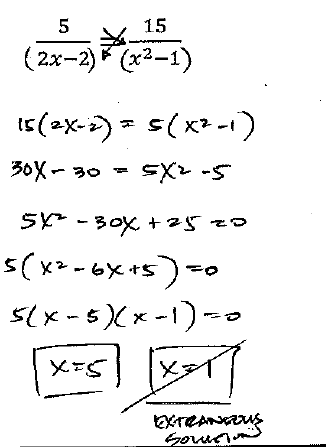 5/(2x-2) = 15/(x²-1)
15(2x-2) = 5(x²-1)
30x - 30 = 5x² - 5
5x² - 30x + 25 = 0
5(x² - 6x + 5) = 0
5(x - 5)(x - 1) = 0
x=5 x=1
EXTRANEOUS
SOLUTION